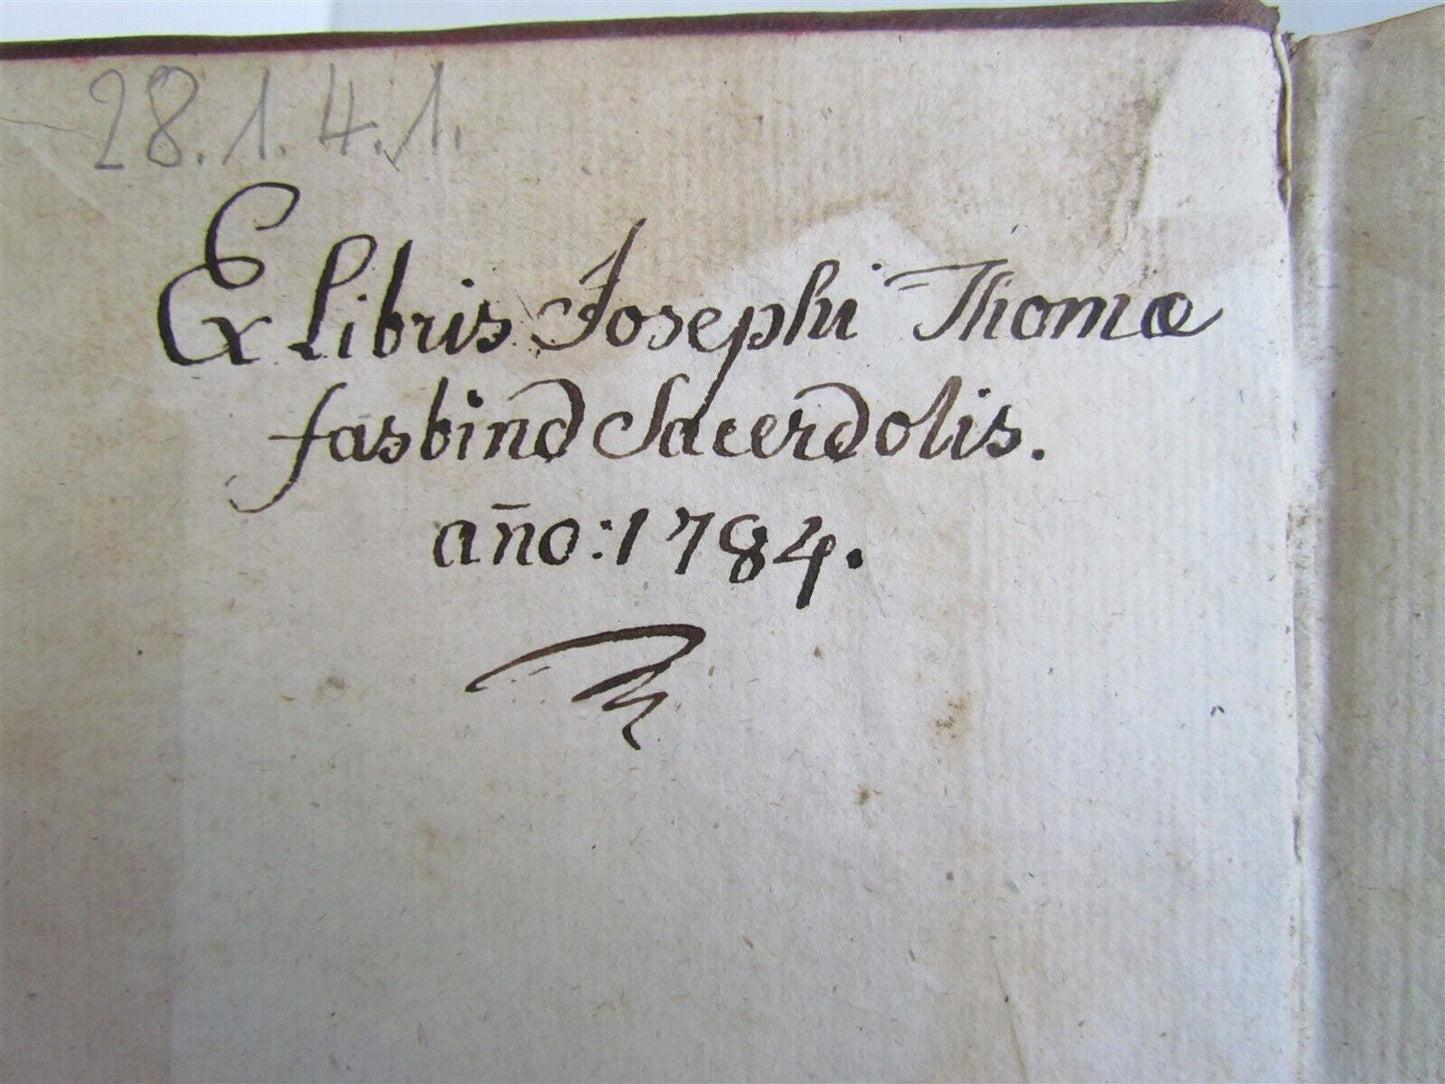 28.1.4.1.
Ex Libris Josephi Thomæ
fasbind Sacerdotis.
an̄o: 1784.